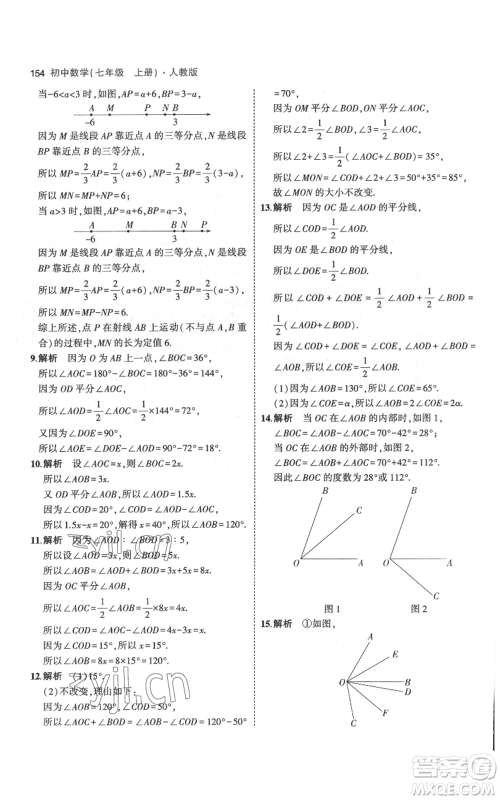 154 初中数学(七年级 上册)·人教版
当-6<a<3 时,如图,AP=a+6,BP=3-a,
A M P N B
-6 3
因为 M 是线段 AP 靠近点 A 的三等分点,N 是线段
BP 靠近点 B 的三等分点,
所以 MP=2/3AP=2/3(a+6),NP=2/3BP=2/3(3-a),
所以 MN=MP+NP=6;
当 a>3 时,如图,AP=a+6,BP=a-3,
A M B N P
-6 3
因为 M 是线段 AP 靠近点 A 的三等分点,N 是线段
BP 靠近点 B 的三等分点,
所以 MP=2/3AP=2/3(a+6),NP=2/3BP=2/3(a-3),
所以 MN=MP-NP=6.
综上所述,点 P 在射线 AB 上运动(不与点 A,B 重
合)的过程中,MN 的长为定值 6.
9.解析 因为 O 为 AB 上一点,∠BOC=36°,
所以∠AOC=180°-∠BOC=180°-36°=144°,
因为 OD 平分∠AOC,
所以∠AOD=1/2∠AOC=1/2×144°=72°,
又因为∠DOE=90°,
所以∠AOE=∠DOE-∠AOD=90°-72°=18°.
10.解析 设∠AOC=x,则∠BOC=2x.
所以∠AOB=3x.
又 OD 平分∠AOB,所以∠AOD=1.5x.
所以∠COD=∠AOD-∠AOC=1.5x-x=20°.
所以 1.5x-x=20°,解得 x=40°,所以∠AOB=120°.
11.解析 因为∠AOD:∠DOB=3:5,
所以设∠AOD=3x,∠DOB=5x,
所以∠AOB=∠AOD+∠DOB=8x,
因为 OC 平分∠AOB,
所以∠AOC=1/2∠AOB=1/2×8x=4x,
所以∠COD=∠AOC-∠AOD=4x-3x=x,
因为∠COD=15°,所以 x=15°,
所以∠AOB=8x=8×15°=120°.
12.解析 (1)15°.
(2)不改变,理由如下:
因为∠AOC+∠BOD=∠AOB-∠COD=90°-20°
=70°,
因为 OM、ON 分别平分∠AOC、∠BOD,
所以∠1=∠2=1/2∠AOC,∠3=∠4=1/2∠BOD,
所以∠2+∠3=1/2(∠AOC+∠BOD)=35°,
所以∠MON=∠COD+∠2+∠3=20°+35°=55°,
故∠MON 的大小不改变.
13.解析 因为 OC 是∠AOD 的平分线,
所以∠COD=1/2∠AOD,
因为 OE 是∠BOD 的平分线,
所以∠DOE=1/2∠BOD,
所以∠COD+∠DOE=1/2∠AOD+1/2∠BOD=
1/2(∠AOD+∠BOD),
因为∠COD+∠DOE=∠COE,∠AOD+∠BOD=
∠AOB,
所以∠COE=1/2∠AOB,
(1)因为∠AOB=130°,所以∠COE=65°.
(2)因为∠COE=α,所以∠AOB=2α.
14.解析 当 OC 在∠AOB 的内部时,如图 1,
∠BOC=∠AOB-∠AOC=70°-42°=28°;
当 OC 在∠AOB 的外部时,如图 2,
∠BOC=∠AOB+∠AOC=70°+42°=112°.
因此∠BOC 的度数为 28°或 112°.
B C O A
B O A C
图 1 图 2
15.解析 ①如图,
A E O B D C